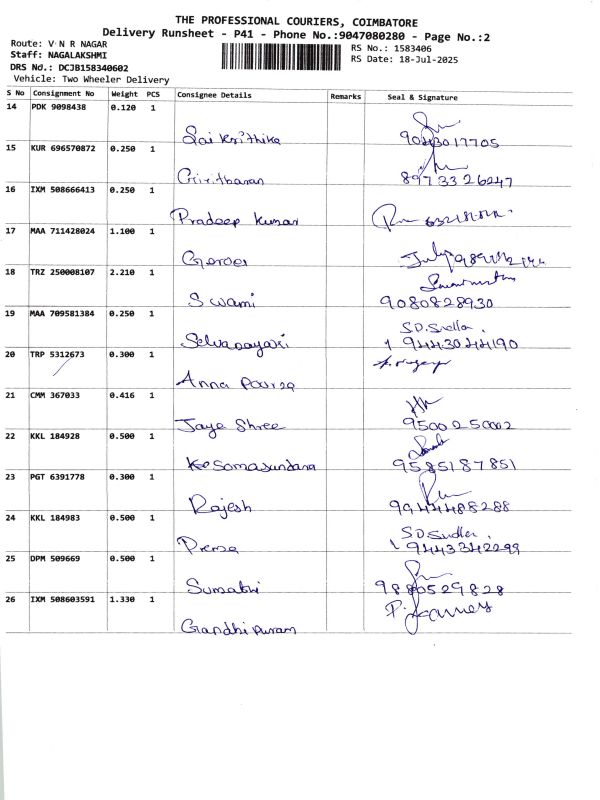 THE PROFESSIONAL COURIERS, COIMBATORE
Delivery Runsheet - P41 - Phone No.:9047080280 - Page No.:2
Route: V N R NAGAR
RS No.: 1583406
Staff: NAGALAKSHMI
RS Date: 18-Jul-2025
DRS No.: DCJB158340602
Vehicle: Two Wheeler Delivery
S No Consignment No Weight PCS Consignee Details Remarks Seal & Signature
14 PDK 9098438 0.120 1
Sai Krithika 9043017705
15 KUR 696570872 0.250 1
Giritharan 8973326247
16 IXM 508666413 0.250 1
Pradeep Kumar
17 MAA 711428024 1.100 1
18 TRZ 250008107 2.210 1
Swami 9080828930
19 MAA 709581384 0.250 1
9443044190
20 TRP 5312673 0.300 1
Anna Poorza
21 CMM 367033 0.416 1
Jaya Shree 9500250002
22 KKL 184928 0.500 1
KeSomasundara 9585187851
23 PGT 6391778 0.300 1
Rajesh 9944488288
24 KKL 184983 0.500 1
9443342299
25 DPM 509669 0.500 1
Sumathi 9880529828
26 IXM 508603591 1.330 1
Gandhi puram